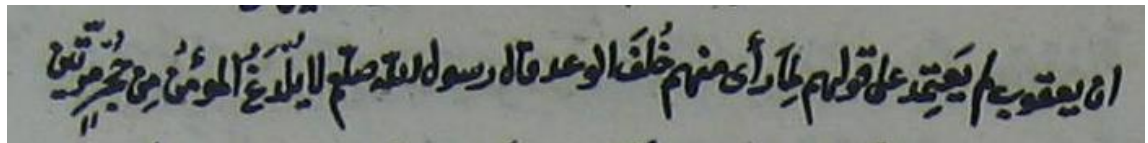 ان يعقوب لم يَعتمِد على قولهم لِمَا رأى منهم خُلفَ الوعد قال رسول الله صلعم لا يلدَغُ المؤمنُ مِن جُحرٍ مرّتين